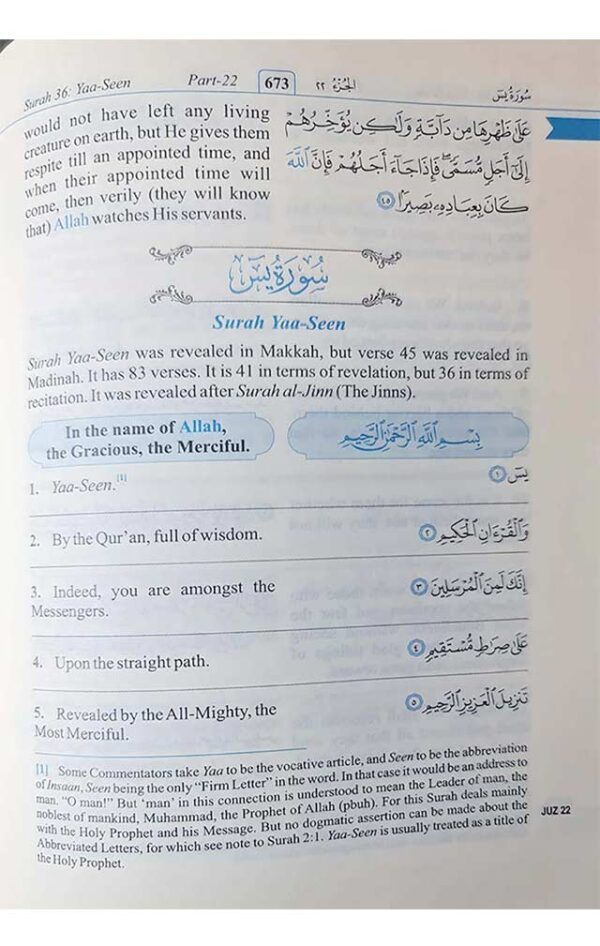 Surah 36: Yaa-Seen Part-22 673 الجزء ٢٢ سورة يس
would not have left any living
creature on earth, but He gives them
respite till an appointed time, and
when their appointed time will
come, then verily (they will know
that) Allah watches His servants.
عَلَىٰ ظَهْرِهَا مِن دَآبَّةٍ وَلَٰكِن يُؤَخِّرُهُمْ
إِلَىٰٓ أَجَلٍ مُّسَمًّى ۖ فَإِذَا جَآءَ أَجَلُهُمْ فَإِنَّ ٱللَّهَ
كَانَ بِعِبَادِهِۦ بَصِيرًۢا ٤٥
سُورَةُ يسٓ
Surah Yaa-Seen
Surah Yaa-Seen was revealed in Makkah, but verse 45 was revealed in
Madinah. It has 83 verses. It is 41 in terms of revelation, but 36 in terms of
recitation. It was revealed after Surah al-Jinn (The Jinns).
In the name of Allah,
the Gracious, the Merciful.
بِسْمِ ٱللَّهِ ٱلرَّحْمَٰنِ ٱلرَّحِيمِ
1. Yaa-Seen.[1]
يسٓ ١
2. By the Qur'an, full of wisdom.
وَٱلْقُرْءَانِ ٱلْحَكِيمِ ٢
3. Indeed, you are amongst the
Messengers.
إِنَّكَ لَمِنَ ٱلْمُرْسَلِينَ ٣
4. Upon the straight path.
عَلَىٰ صِرَٰطٍ مُّسْتَقِيمٍ ٤
5. Revealed by the All-Mighty, the
Most Merciful.
تَنزِيلَ ٱلْعَزِيزِ ٱلرَّحِيمِ ٥
[1] Some Commentators take Yaa to be the vocative article, and Seen to be the abbreviation
of Insaan, Seen being the only "Firm Letter" in the word. In that case it would be an address to
man. "O man!" But 'man' in this connection is understood to mean the Leader of man, the
noblest of mankind, Muhammad, the Prophet of Allah (pbuh). For this Surah deals mainly
with the Holy Prophet and his Message. But no dogmatic assertion can be made about the
Abbreviated Letters, for which see note to Surah 2:1. Yaa-Seen is usually treated as a title of
the Holy Prophet.
JUZ 22